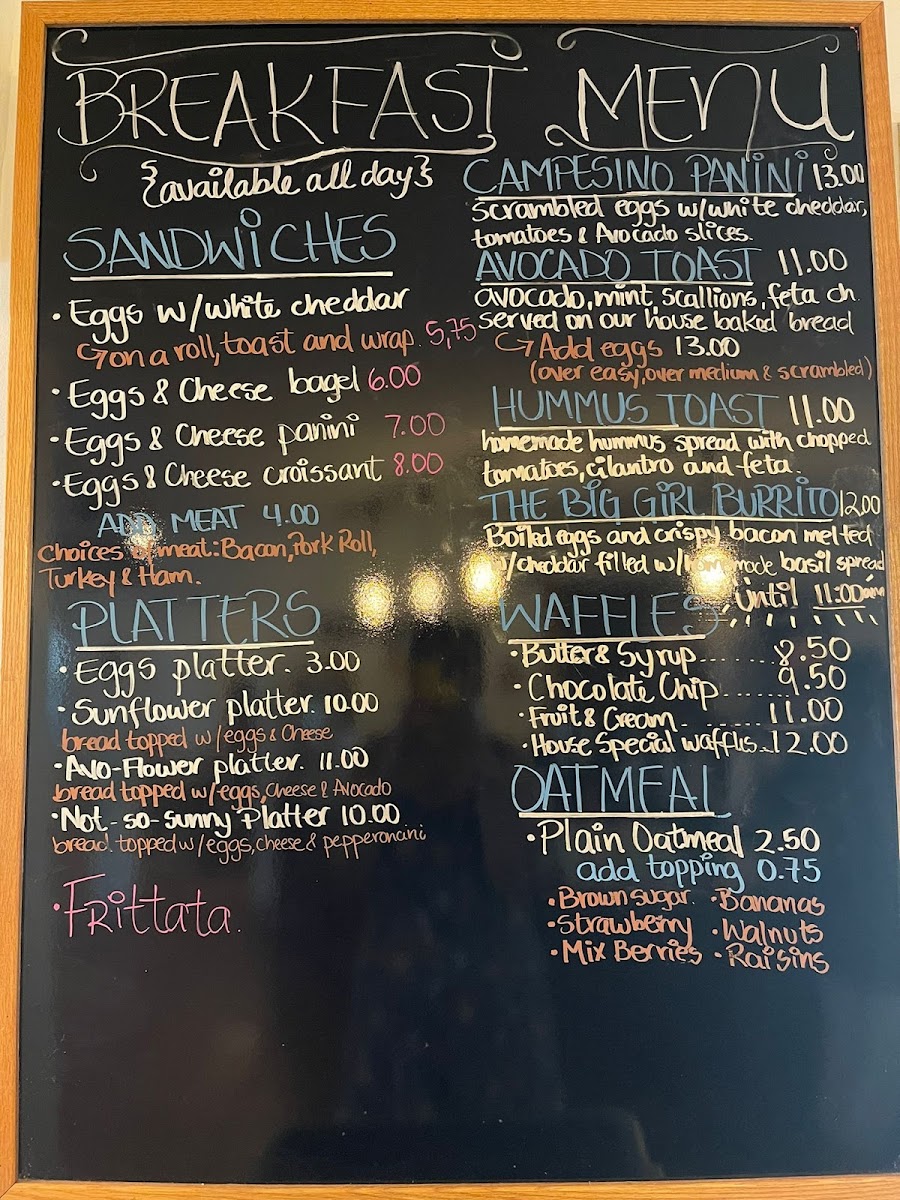 BREAKFAST MENU
{available all day}
SANDWICHES
• Eggs w/white cheddar
on a roll, toast and wrap. 5,75
• Eggs & Cheese bagel 6.00
• Eggs & Cheese panini 7.00
• Eggs & Cheese croissant 8.00
ADD MEAT 4.00
Choices of meat: Bacon, Pork Roll,
Turkey & Ham.
PLATTERS
• Eggs platter. 3.00
• Sunflower platter. 10.00
bread topped w/eggs & Cheese
• Avo-Flower platter. 11.00
bread topped w/eggs, Cheese & Avocado
• Not-so-sunny Platter 10.00
bread. topped w/eggs, cheese & pepperoncini
• Frittata.
CAMPESINO PANINI 13.00
scrambled eggs w/white cheddar,
tomatoes & Avocado slices.
AVOCADO TOAST 11.00
avocado, mint, scallions, feta ch.
served on our house baked bread
Add eggs 13.00
(over easy, over medium & scrambled)
HUMMUS TOAST 11.00
homemade hummus spread with chopped
tomatoes, cilantro and feta.
THE BIG GIRL BURRITO 12.00
Boiled eggs and crispy bacon melted
w/cheddar filled w/homemade basil spread
WAFFLES until 11:00am
• Butter & Syrup...... 8.50
• Chocolate Chip...... 9.50
• Fruit & Cream...... 11.00
• House Special waffles..12.00
OATMEAL
• Plain Oatmeal 2.50
add topping 0.75
• Brown sugar. • Bananas
• Strawberry • Walnuts
• Mix Berries • Raisins